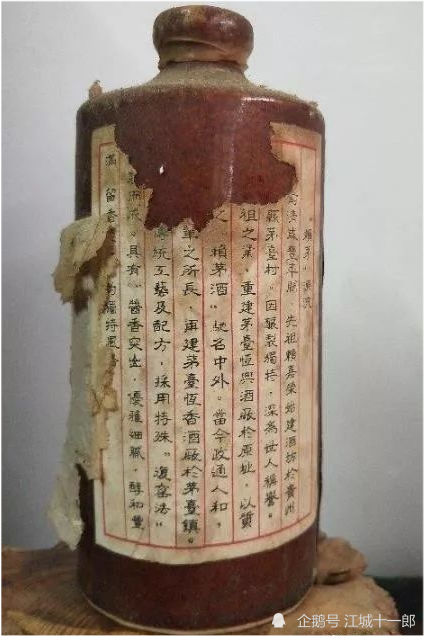 "賴茅"源流
清咸豐年間，先祖賴嘉榮始建酒坊於貴州
縣茅臺村。因釀製獨特，深為世人稱譽。
祖之業，重建茅臺恆興酒廠於原址，以質
之，"賴茅酒"馳名中外。當今政通人和，
之所長，再建茅臺恆香酒廠於茅臺鎮。
統工藝及配方，採用特殊"復窖法"
流。具有"醬香突出，優雅細膩，醇和豐
滿，留香 獨特風
企鹅号 江城十一郎